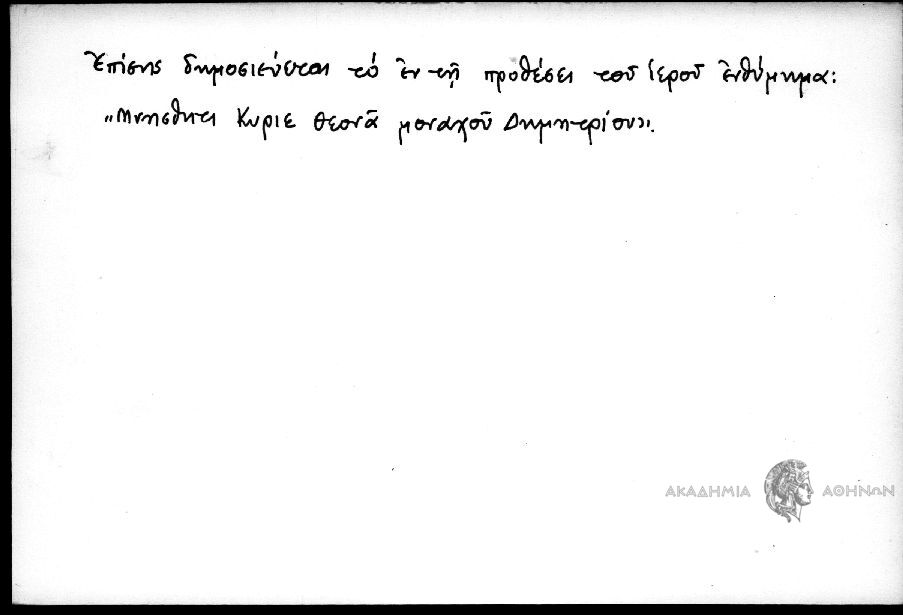 Ἐπίσης δημοσιεύεται τό ἐν τῇ προθέσει τοῦ ἱεροῦ ἐνθύμημα:
„Μνήσθητι Κυριε Θεονᾶ μοναχοῦ Δημητρίου».
ΑΚΑΔΗΜΙΑ ΑΘΗΝΩΝ